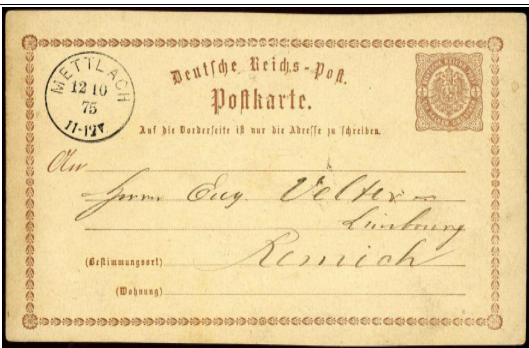 METTLACH
12 10
75
11-12V.
Deutsche Reichs-Post.
Postkarte.
Auf die Vorderseite ist nur die Adresse zu schreiben.
An
Herrn Eug. Velter
Limbourg
(Bestimmungsort) Remich
(Wohnung)